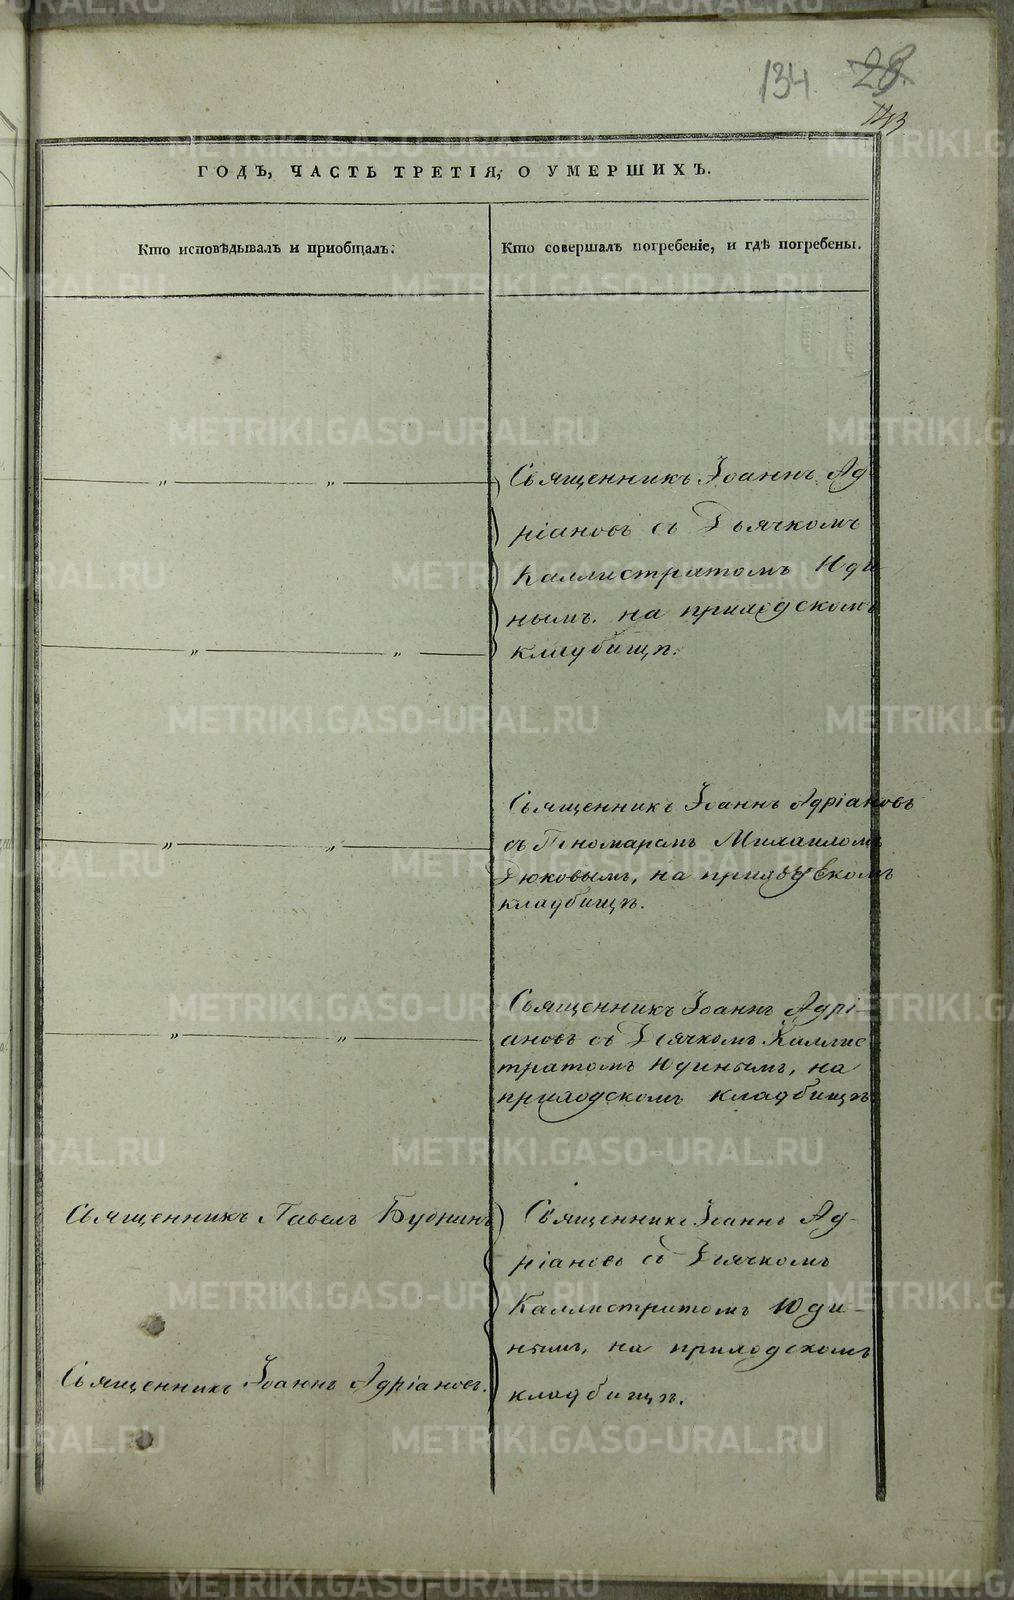 134
28
ГОДЪ, ЧАСТЬ ТРЕТІЯ, О УМЕРШИХЪ.
Кто исповѣдывалъ и пріобщалъ.
Кто совершалъ погребеніе, и гдѣ погребены.
Священникъ Іоаннъ Ад
ріановъ съ Дьячкомъ
Каллистратомъ Юди
нымъ. на приходскомъ
кладбищѣ.
Священникъ Іоаннъ Адріановъ
съ Пономаремъ Михаиломъ
Дюковымъ, на приходскомъ
кладбищѣ.
Священникъ Іоаннъ Адрі-
ановъ съ Дьячкомъ Каллис
тратомъ Юдинымъ, на
приходскомъ кладбищѣ
Священникъ Павелъ Буднинъ
Священникъ Іоаннъ Ад-
ріановъ съ Дьячкомъ
Каллистратомъ Юди-
нымъ, на приходскомъ
Священникъ Іоаннъ Адріановъ.
кладбищѣ.
METRIKI.GASO-URAL.RU